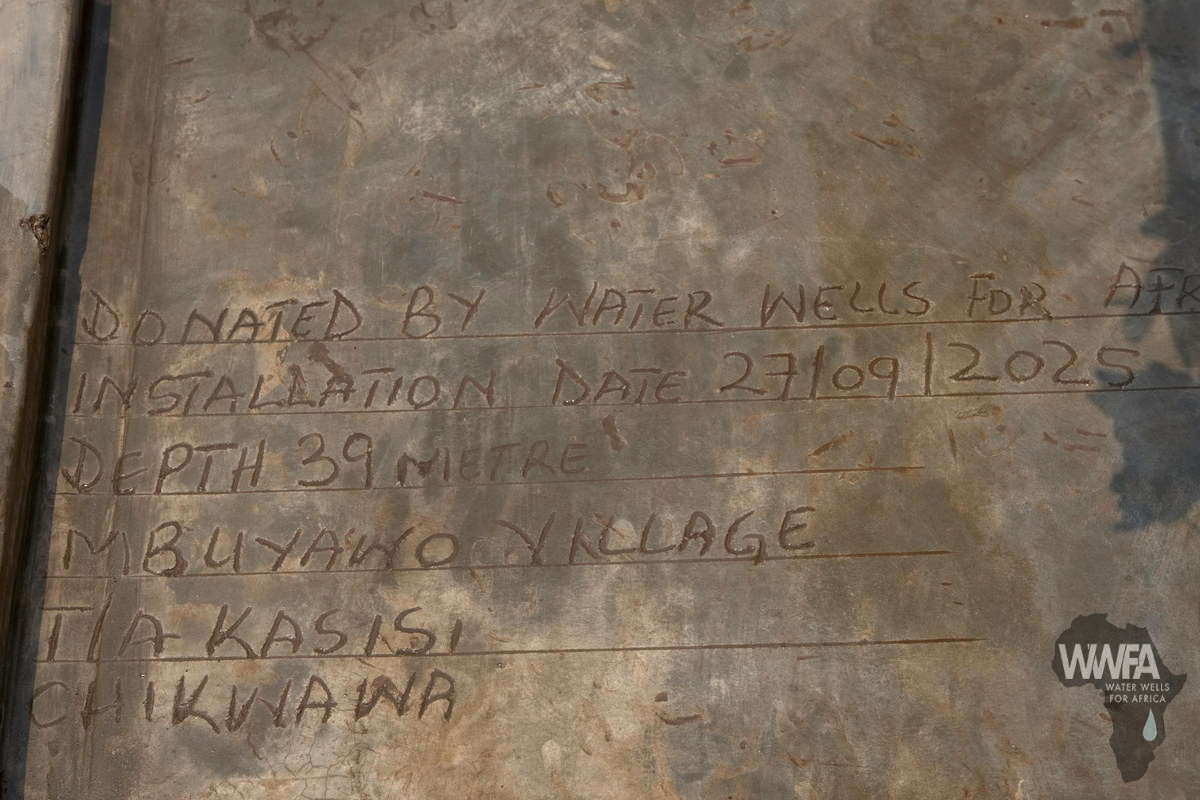 DONATED BY WATER WELLS FOR AFR
INSTALLATION DATE 27/09/2025
DEPTH 39 METRE
MBUYAWO VILLAGE
T/A KASISI
CHIKWAWA
WWFA
WATER WELLS
FOR AFRICA